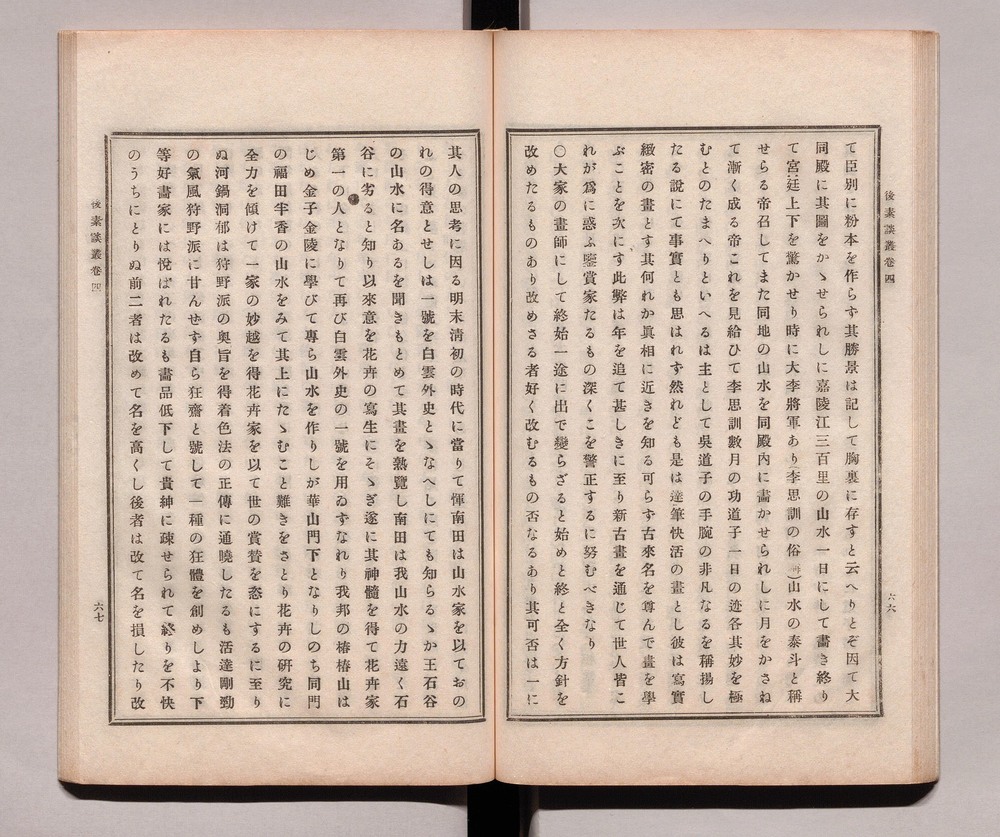 後素談叢卷四
六六
て臣別に粉本を作らす其勝景は記して胸裏に存すと云へりとぞ因て大
同殿に其圖をかゝせられしに嘉陵江三百里の山水一日にして畵き終り
て宮廷上下を驚かせり時に大李將軍あり(李思訓の俗稱)山水の泰斗と稱
せらる帝召してまた同地の山水を同殿內に畵かせられしに月をかさね
て漸く成る帝これを見給ひて李思訓數月の功道子一日の迹各其妙を極
むとのたまへりといへるは主として吳道子の手腕の非凡なるを稱揚し
たる說にて事實とも思はれず然れども是は達筆快活の畵とし彼は寫實
緻密の畵とす其何れか眞相に近きを知る可らす古來名を尊んで畵を學
ぶことを次にす此弊は年を追て甚しきに至り新古畵を通じて世人皆こ
れが爲に惑ふ鑒賞家たるもの深くこを警正するに努むべきなり
〇大家の畵師にして終始一途に出で變らざると始めと終と全く方針を
改めたるものあり改めさる者好く改むるもの否なるあり其可否は一に
其人の思考に因る明末淸初の時代に當りて惲南田は山水家を以ておの
れの得意とせしは一號を白雲外史とゝなへしにても知らるゝか王石谷
の山水に名あるを聞きもとめて其畵を熟覽し南田は我山水の力遠く石
谷に劣ると知り以來意を花卉の寫生にそゝぎ遂に其神髓を得て花卉家
第一の人となりて再び白雲外史の一號を用ゐずなれり我邦の椿椿山は
じめ金子金陵に學びて專ら山水を作りしが華山門下となりしのち同門
の福田半香の山水をみて其上にたゝむこと難きをさとり花卉の硏究に
全力を傾けて一家の妙越を得花卉家を以て世の賞賛を恣にするに至り
ぬ河鍋洞郁は狩野派の奥旨を得着色法の正傳に通曉したるも活達剛勁
の氣風狩野派に甘んせず自ら狂齋と號して一種の狂體を創めしより下
等好畵家には悅ばれたるも畵品低下して貴紳に疎せられて終りを不快
のうちにとりぬ前二者は改めて名を高くし後者は改て名を損したり改
後素談叢卷四
六七